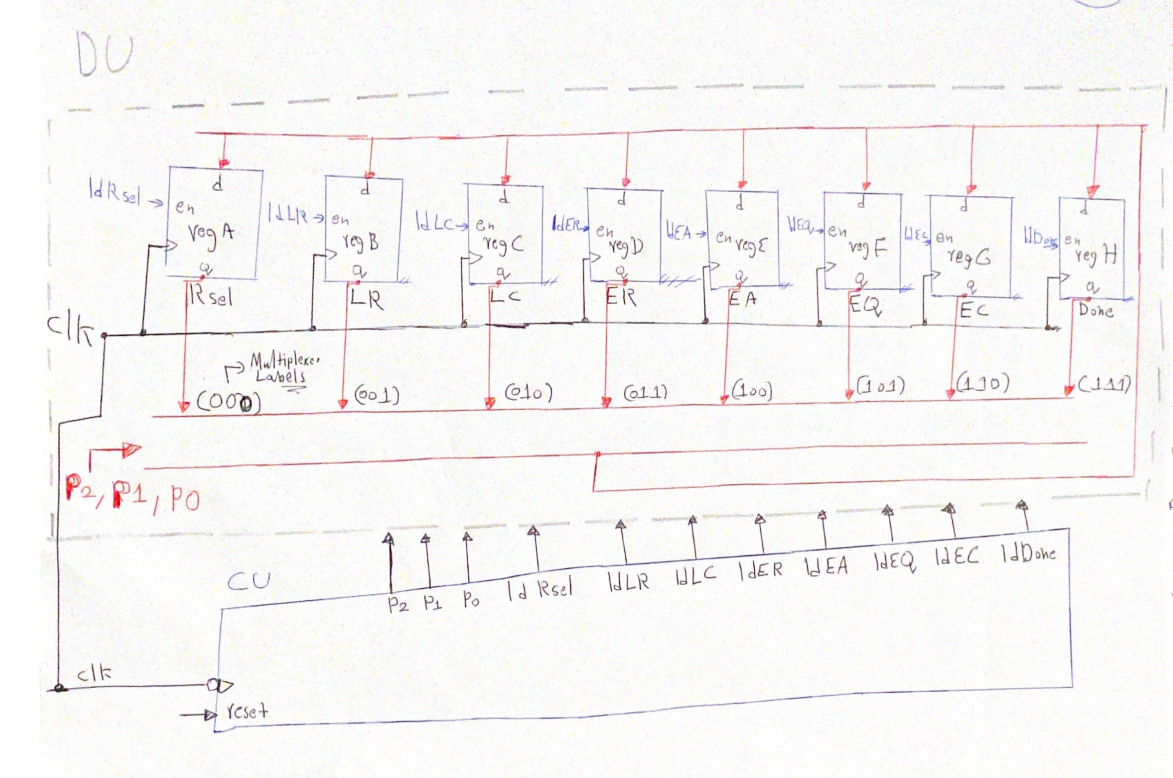 DU
d d d d d d d d
ldRsel en regA
ldLR en regB
ldLC en regC
ldER en regD
ldEA en regE
ldEQ en regF
ldEC en regG
ldDone en regH
q q q q q q q q
Rsel LR LC ER EA EQ EC Done
clk
Multiplexer
Labels
(000) (001) (010) (011) (100) (101) (110) (111)
P2, P1, P0
CU
P2 P1 P0 ld Rsel ldLR ldLC ldER ldEA ldEQ ldEC ldDone
clk
reset